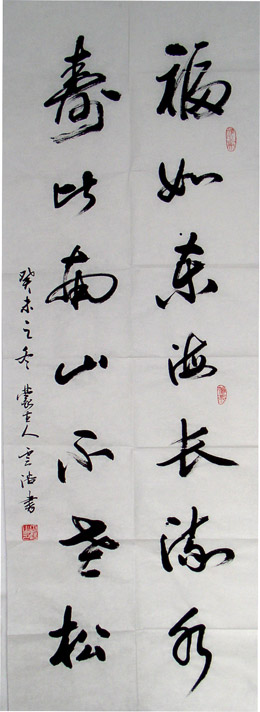 福如东海长流水
寿比南山不老松
癸未之冬 蒙古人 云浩书